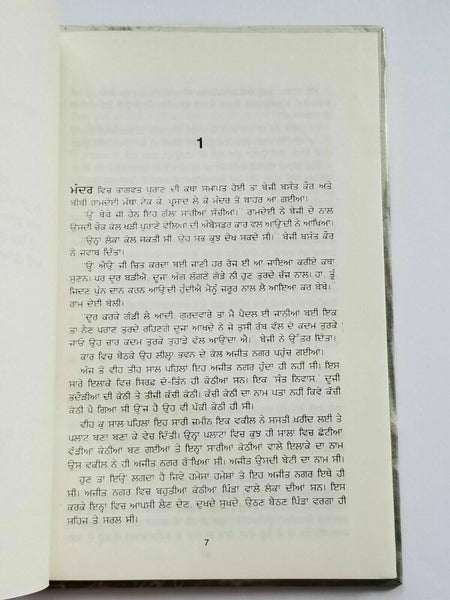 1
ਮੰਦਰ ਵਿਚ ਭਾਗਵਤ ਪੁਰਾਣ ਦੀ ਕਥਾ ਸਮਾਪਤ ਹੋਈ ਤਾਂ ਬੇਜੀ ਬਸੰਤ ਕੌਰ ਅਤੇ
ਬੀਬੀ ਰਾਮਦੇਈ ਮੱਥਾ ਟੇਕ ਕੇ, ਪ੍ਰਸ਼ਾਦ ਲੈ ਕੇ ਮੰਦਰ ਤੋਂ ਬਾਹਰ ਆ ਗਈਆਂ।
'ਉਂ ਬੇਬੇ ਜੀ ਹੈਨ ਇਹ ਗੱਲਾਂ ਸਾਰੀਆਂ ਸੱਚੀਆਂ।' ਰਾਮਦੇਈ ਨੇ ਬੇਜੀ ਦੇ ਨਾਲ
ਉਸਦੀ ਚੋਕ ਕੋਲ ਖੜੀ ਪੁਰਾਣੇ ਵੇਲਿਆਂ ਦੀ ਅੰਬੈਸਡਰ ਕਾਰ ਵੱਲ ਆਉਂਦੀ ਨੇ ਆਖਿਆ।
'ਉਨ੍ਹਾਂ ਲੋਕਾਂ ਕੋਲ ਸ਼ਕਤੀ ਸੀ। ਉਹ ਸਭ ਕੁਝ ਦੇਖ ਸਕਦੇ ਸੀ।' ਬੇਜੀ ਬਸੰਤ ਕੌਰ
ਨੇ ਜਵਾਬ ਦਿੱਤਾ।
'ਉਂ ਐਉਂ ਜੀ ਚਿਤ ਕਰਦਾ ਬਈ ਜਾਣੀ ਹਰ ਰੋਜ਼ ਈ ਆ ਜਾਇਆ ਕਰੀਏ ਕਥਾ
ਸੁਣਨ। ਪਰ ਦੂਰ ਬੜੀਐ, ਦੂਜਾ ਅੱਗ ਲੱਗਣੇ ਗੋਡੇ ਨੀ ਹੁਣ ਤੁਰਦੇ ਚੱਜ ਨਾਲ। ਹਾਂ, ਤੂੰ
ਜਿਦਣ ਪੁੰਨ ਦਾਨ ਕਰਨ ਆਉਂਦੀ ਹੁੰਦੀਐਂ ਮੈਨੂੰ ਜ਼ਰੂਰ ਨਾਲ ਲੈ ਆਇਆ ਕਰ ਬੇਬੇ।'
ਰਾਮ ਦੇਈ ਬੋਲੀ।
'ਦੂਰ ਕਰਕੇ ਗੱਡੀ ਲੈ ਆਂਦੀ। ਗੁਰਦਵਾਰੇ ਤਾਂ ਮੈਂ ਪੈਦਲ ਈ ਜਾਨੀਆਂ ਬਈ ਇਕ
ਤਾਂ ਨੈਣ ਪਰਾਣ ਤੁਰਦੇ ਰਹਿਣਗੇ ਦੂਜਾ ਆਖਦੇ ਨੇ ਜੇ ਤੁਸੀਂ ਰੱਬ ਵੱਲ ਦੋ ਕਦਮ ਤੁਰਕੇ
ਜਾਓਂ ਉਹ ਚਾਰ ਕਦਮ ਤੁਰਕੇ ਤੁਹਾਡੇ ਵੱਲ ਆਉਂਦਾ ਐ।' ਬੇਜੀ ਨੇ ਉੱਤਰ ਦਿੱਤਾ।
ਕਾਰ ਵਿਚ ਬੈਠਕੇ ਉਹ ਲੀਲ੍ਹਾ ਭਵਨ ਦੇ ਕੋਲ ਅਜੀਤ ਨਗਰ ਪਹੁੰਚ ਗਈਆਂ।
ਅੱਜ ਤੋਂ ਵੀਹ ਤੀਹ ਸਾਲ ਪਹਿਲਾਂ ਇਹ ਅਜੀਤ ਨਗਰ ਹੁੰਦਾ ਹੀ ਨਹੀਂ ਸੀ। ਇਸ
ਸਾਰੇ ਇਲਾਕੇ ਵਿਚ ਸਿਰਫ਼ ਦੋ-ਤਿੰਨ ਹੀ ਕੋਠੀਆਂ ਸਨ। ਇਕ 'ਸੰਤ ਨਿਵਾਸ', ਦੂਜੀ
ਭਦੌੜੀਆਂ ਦੀ ਕੋਠੀ ਤੇ ਤੀਜੀ ਕੱਚੀ ਕੋਠੀ। ਕੱਚੀ ਕੋਠੀ ਦਾ ਨਾਮ ਪਤਾ ਨਹੀਂ ਕਿਵੇਂ ਕੱਚੀ
ਕੋਠੀ ਪੈ ਗਿਆ ਸੀ ਉਂਜ ਹੈ ਉਹ ਵੀ ਪੱਕੀ ਕੋਠੀ ਹੀ ਸੀ।
ਵੀਹ ਕੁ ਸਾਲ ਪਹਿਲਾਂ ਇਹ ਸਾਰੀ ਜ਼ਮੀਨ ਇਕ ਵਕੀਲ ਨੇ ਸਸਤੀ ਖ਼ਰੀਦ ਲਈ ਤੇ
ਪਲਾਟ ਬਣਾ ਬਣਾ ਕੇ ਵੇਚ ਦਿੱਤੀ। ਉਨ੍ਹਾਂ ਪਲਾਟਾਂ ਵਿਚ ਕੁਝ ਹੀ ਸਾਲਾਂ ਵਿਚ ਛੋਟੀਆਂ
ਵੱਡੀਆਂ ਕੋਠੀਆਂ ਬਣ ਗਈਆਂ ਤੇ ਇਨ੍ਹਾਂ ਸਾਰੀਆਂ ਕੋਠੀਆਂ ਵਾਲੇ ਇਲਾਕੇ ਦਾ ਨਾਮ
ਉਸ ਵਕੀਲ ਨੇ ਹੀ ਅਜੀਤ ਨਗਰ ਰੱਖਿਆ ਸੀ। ਅਜੀਤ ਉਸਦੀ ਬੇਟੀ ਦਾ ਨਾਮ ਸੀ।
ਹੁਣ ਤਾਂ ਇਉਂ ਲਗਦਾ ਹੈ ਜਿਵੇਂ ਹਮੇਸ਼ਾਂ ਹਮੇਸ਼ਾਂ ਤੋਂ ਇਹ ਅਜੀਤ ਨਗਰ ਇਥੇ ਹੀ
ਸੀ। ਅਜੀਤ ਨਗਰ ਵਿਚ ਬਹੁਤੀਆਂ ਕੋਠੀਆਂ ਪਿੰਡਾਂ ਵਾਲੇ ਲੋਕਾਂ ਦੀਆਂ ਸਨ। ਇਸ
ਕਰਕੇ ਇਨ੍ਹਾਂ ਵਿਚ ਆਪਸੀ ਲੈਣ ਦੇਣ, ਦੁਖਦੇ ਸੁਖਦੇ, ਉਠਣ ਬੈਠਣ ਪਿੰਡਾਂ ਵਰਗਾ ਹੀ
ਸਹਿਜ ਤੇ ਸਰਲ ਸੀ।
7